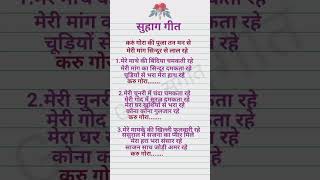 सुहाग गीत
करु गोरा की पूजा तन मन से
मेरी मांग सिन्दूर से लाल रहे
1.मेरे माथे की बिंदिया चमकती रहे
मेरी मांग का सिन्दूर दमकता रहे
चूड़ियों से भरा मेरा हाथ रहे
करु गोरा.......
2.मेरी चुनरी में चंदा चमकता रहे
मेरी गोद में सूरज दमकता रहे
मेरा घर खुशियों से भरा रहे
कोना कोना गुलजार रहे
करु गोरा.......
3.मेरे मायके की खिल्ली फुलवारी रहे
ससुराल में सजना का प्यार मिले
मेरा हरा भरा संसार रहे
साजन साथ जोड़ी अमर रहे
करु गोरा.......